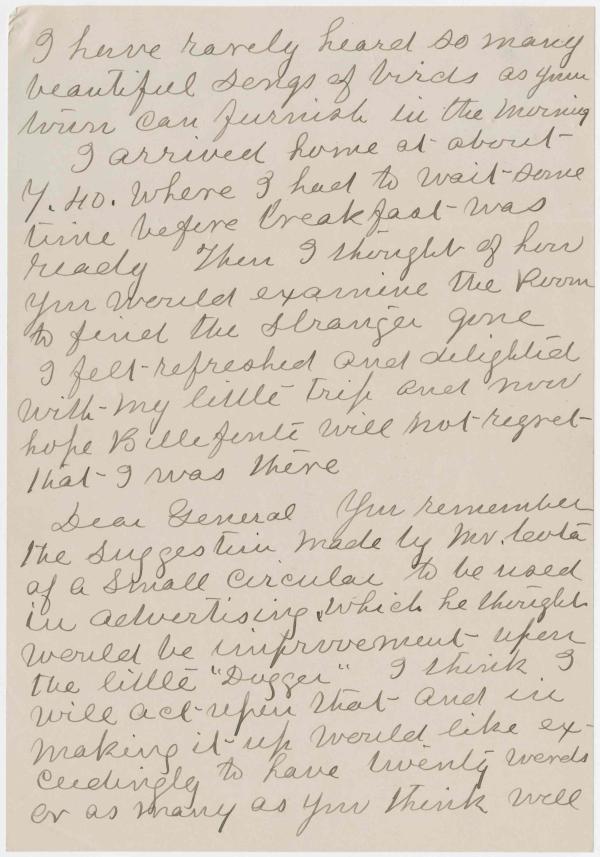 I have rarely heard so many
beautiful songs of birds as your
town can furnish in the morning
I arrived home at about
7.40. Where I had to wait some
time before breakfast was
ready Then I thought of how
you would examine the Room
to find the stranger gone
I felt refreshed and delighted
with my little trip and now
hope Bellefonte will not regret
that I was there
Dear General You remember
the suggestion made by Mr.
of a small circular to be used
in advertising, which he thought
would be improvement upon
the little "Dogger" I think I
will act upon that and in
making it up would like ex-
ceedingly to have twenty words
or as many as you think well